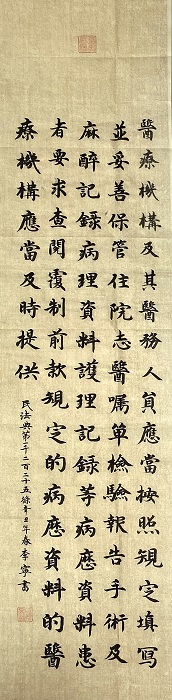 醫療機構及其醫務人員應當按照規定填寫
並妥善保管住院志醫囑單檢驗報告手術及
麻醉記録病理資料護理記録等病歷資料患
者要求查閱覆制前款規定的病歷資料的醫
療機構應當及時提供
民法典第一千二百二十五條辛丑年春李寧書